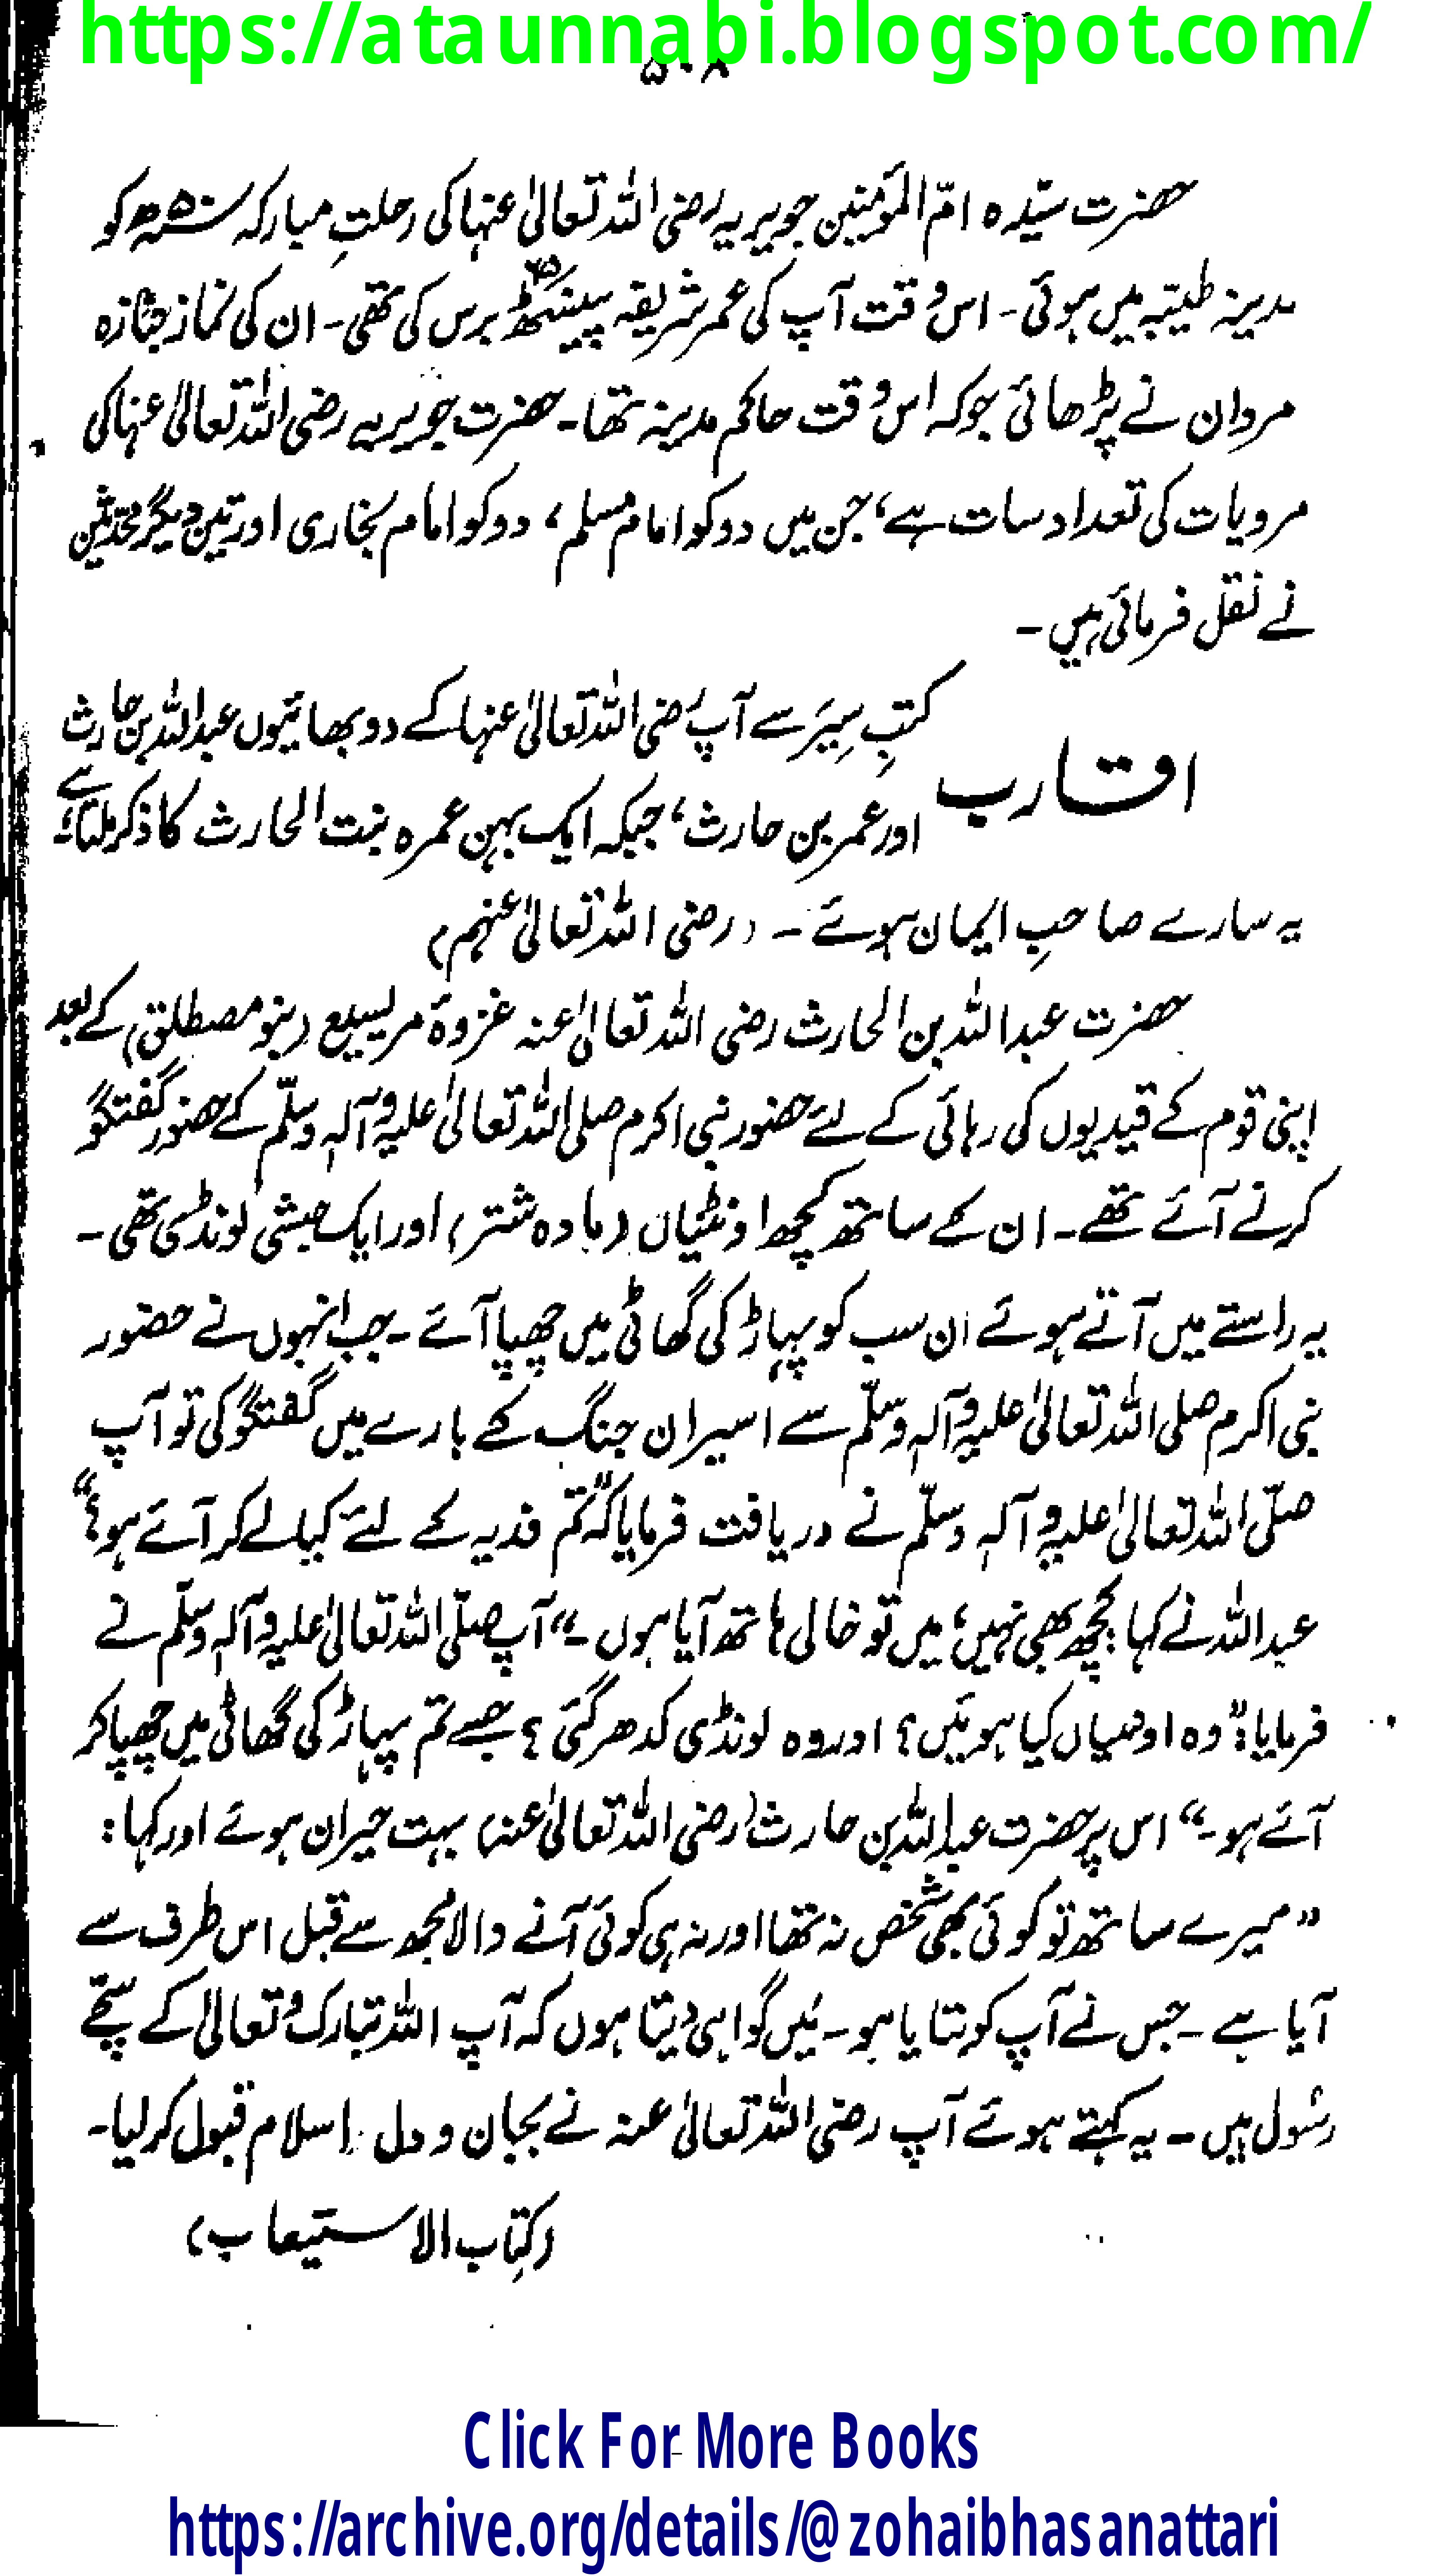 https://ataunnabi.blogspot.com/
۵۰۸
حضرت سیّدہ امّ المؤمنین جویریہ رضی اللہ تعالیٰ عنہا کی رحلتِ مبارکہ ۵۰ھ کو
مدینہ طیّبہ میں ہوئی۔ اس وقت آپ کی عمر شریفہ پینسٹھ ۶۵ برس کی تھی۔ ان کی نماز جنازہ
مروان نے پڑھائی جو کہ اس وقت حاکم مدینہ تھا۔ حضرت جویریہ رضی اللہ تعالیٰ عنہا کی
مرویات کی تعداد سات ہے، جن میں دو کو امام مسلم، دو کو امام بخاری اور تین دیگر محدّثین
نے نقل فرمائی ہیں۔
اقارب
کتبِ سِیَر سے آپ رضی اللہ تعالیٰ عنہا کے دو بھائیوں عبداللہ بن حارث
اور عمر بن حارث، جبکہ ایک بہن عمرہ بنت الحارث کا ذکر ملتا ہے۔
یہ سارے صاحبِ ایمان ہوئے۔ (رضی اللہ تعالیٰ عنہم)
حضرت عبداللہ بن الحارث رضی اللہ تعالیٰ عنہ غزوۃ مریسیع (بنو مصطلق) کے بعد
اپنی قوم کے قیدیوں کی رہائی کے لئے حضور نبی اکرم صلی اللہ تعالیٰ علیہ وآلہٖ وسلّم کے حضور گفتگو
کرنے آئے تھے۔ ان کے ساتھ کچھ اونٹنیاں (مادہ شتر) اور ایک حبشی لونڈی تھی۔
یہ راستے میں آتے ہوئے ان سب کو پہاڑ کی گھاٹی میں چھپا آئے۔ جب انہوں نے حضور
نبی اکرم صلی اللہ تعالیٰ علیہ وآلہٖ وسلّم سے اسیران جنگ کے بارے میں گفتگو کی تو آپ
صلّی اللہ تعالیٰ علیہ وآلہٖ وسلّم نے دریافت فرمایا کہ ”تم فدیہ کے لئے کیا لے کر آئے ہو؟“
عبداللہ نے کہا: کچھ بھی نہیں، میں تو خالی ہاتھ آیا ہوں۔“ آپ صلّی اللہ تعالیٰ علیہ وآلہٖ وسلّم نے
فرمایا: ”وہ اونٹنیاں کیا ہوئیں؟ اور وہ لونڈی کدھر گئی؟ جسے تم پہاڑ کی گھاٹی میں چھپا کر
آئے ہو۔“ اس پر حضرت عبداللہ بن حارث (رضی اللہ تعالیٰ عنہ) بہت حیران ہوئے اور کہا:
”میرے ساتھ تو کوئی بھی شخص نہ تھا اور نہ ہی کوئی آنے والا مجھ سے قبل اس طرف سے
آیا ہے۔ جس نے آپ کو بتایا ہو۔ مَیں گواہی دیتا ہوں کہ آپ اللہ تبارک و تعالیٰ کے سچّے
رسُول ہیں۔ یہ کہتے ہوئے آپ رضی اللہ تعالیٰ عنہ نے بجان و دل اسلام قبول کر لیا۔
(کتاب الاستیعاب)
Click For More Books
https://archive.org/details/@zohaibhasanattari